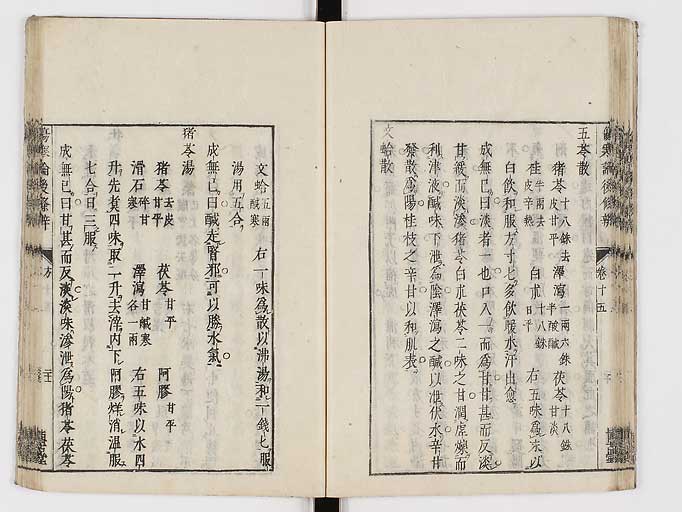 五苓散
猪苓十八銖去皮甘平 澤瀉一兩六銖半酸鹹 茯苓十八銖甘淡
桂半兩去皮辛熱 白朮十八銖甘平 右五味爲末以
白飲和服方寸匕多飲煖水汗出愈
成無已曰淡者一也口入一而爲甘甘甚而反淡
甘緩而淡滲猪苓白朮茯苓三味之甘潤虛燥而
利津液鹹味下泄爲陰澤瀉之鹹以泄伏水辛甘
發散爲陽桂枝之辛甘以和肌表
文蛤散
文蛤五兩鹹寒 右一味爲散以沸湯和一錢匕服
湯用五合
成無已曰鹹走腎邪可以勝水氣
猪苓湯
猪苓去皮甘平 茯苓甘平 阿膠甘平
滑石碎甘寒 澤瀉甘鹹寒各一兩 右五味以水四
升先煮四味取二升去滓内下阿膠烊消温服
七合日三服
成無已曰甘甚而反淡淡味滲泄爲陽猪苓茯苓
卷十五